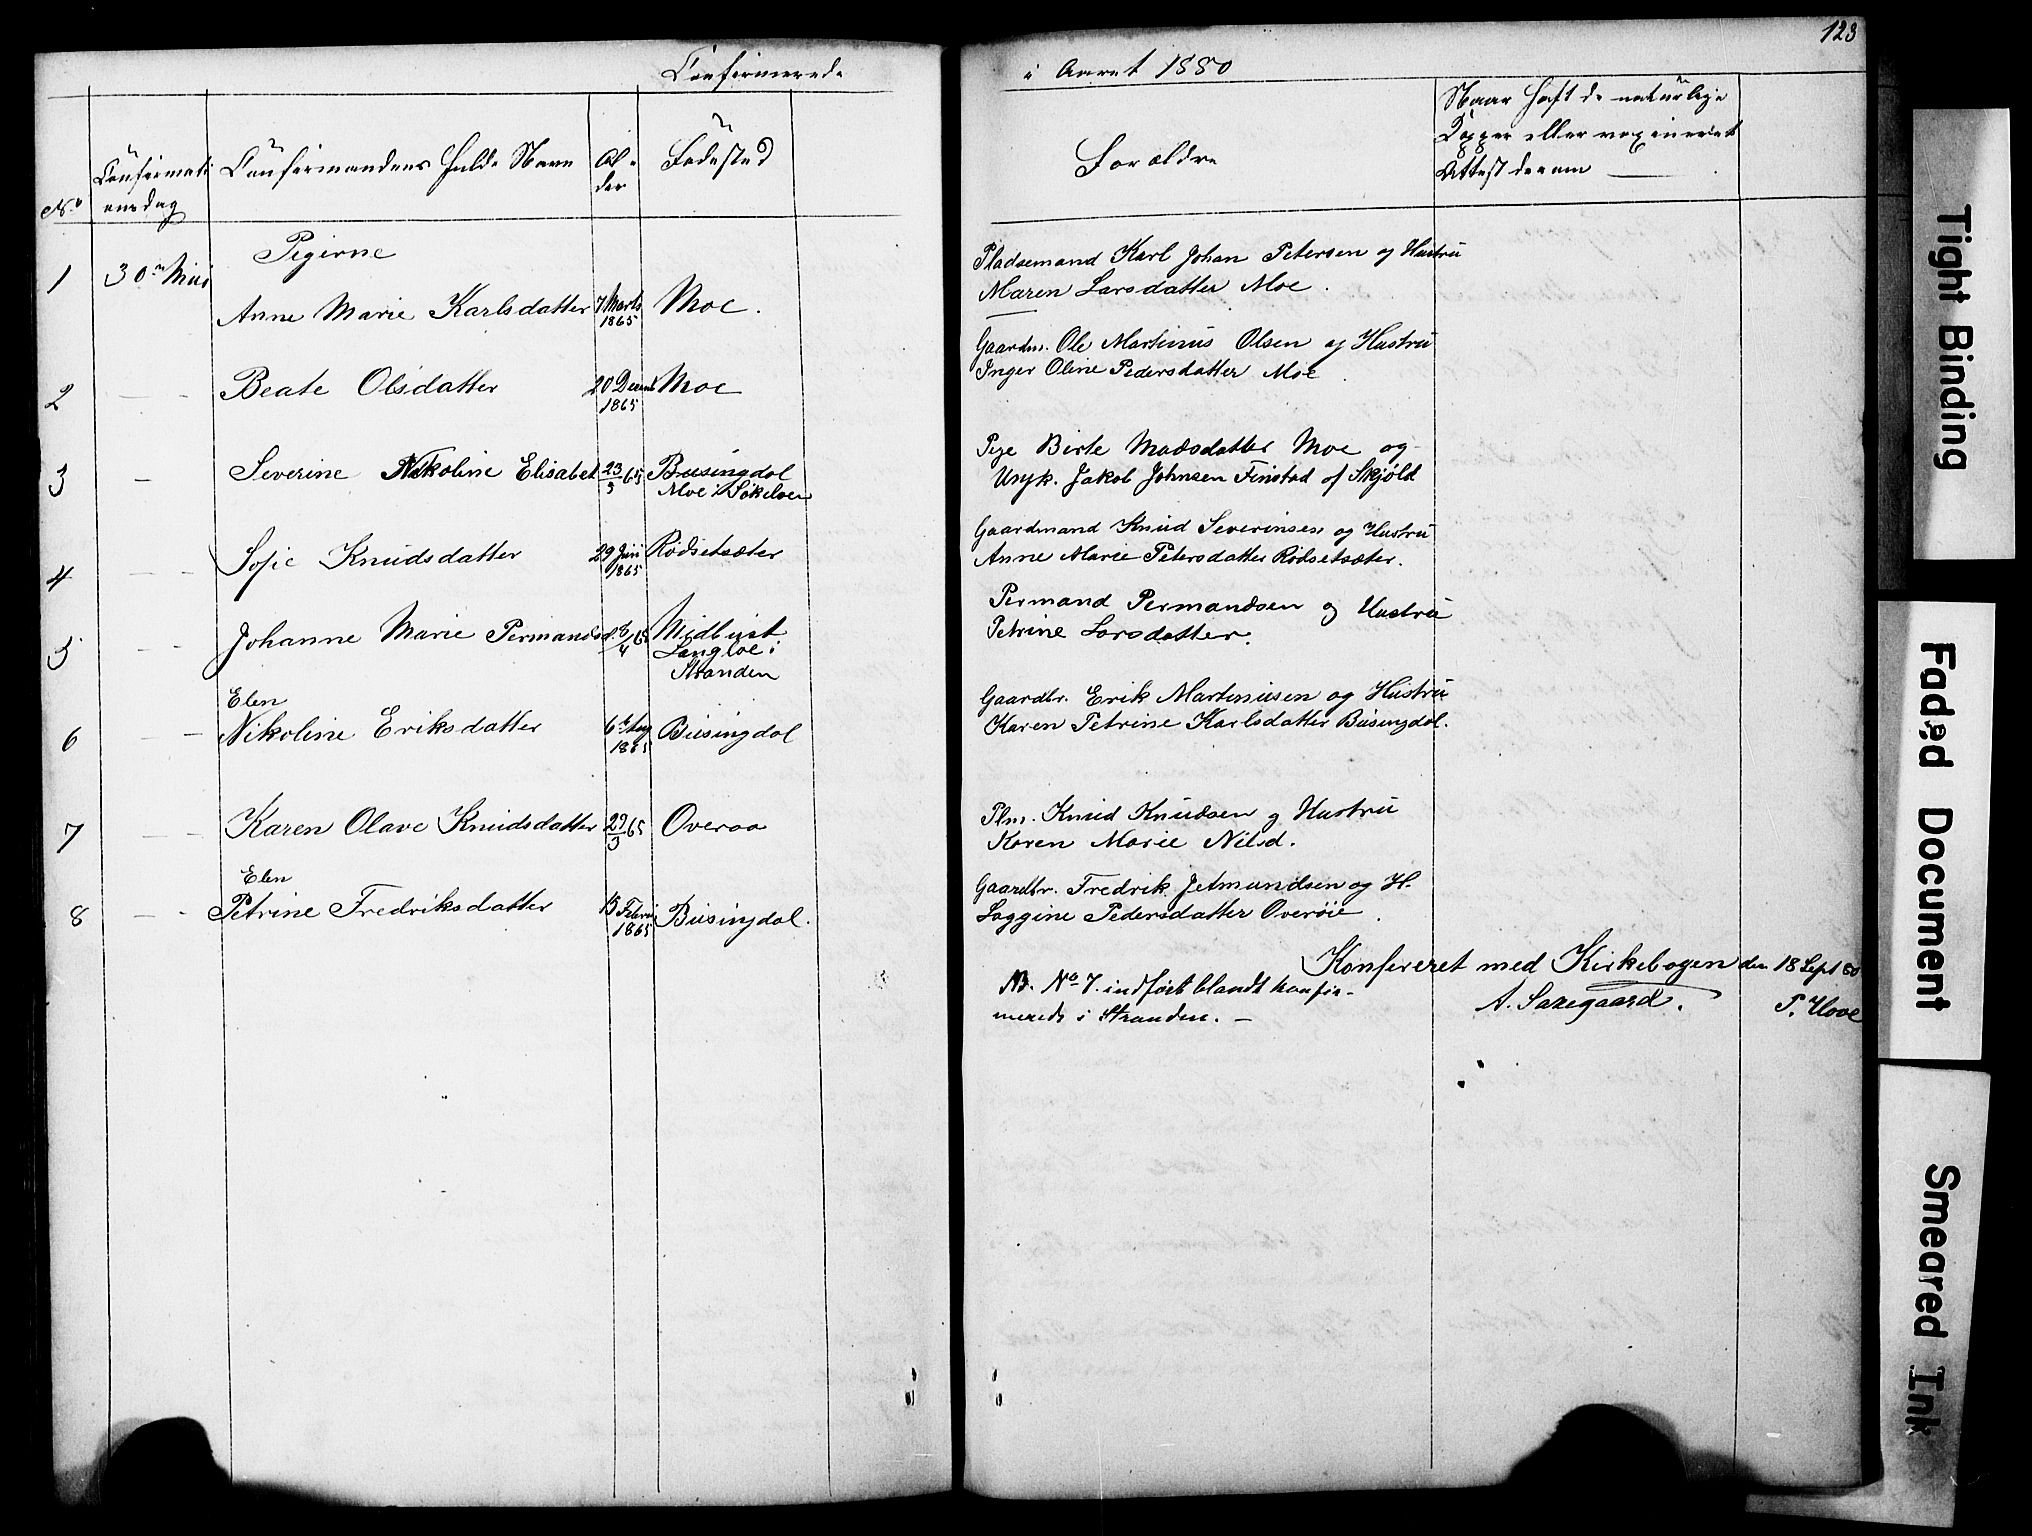 Confirmerede
i Aaret 1880
123
No
Confirmati
onsdag
Confirmandens fulde Navn
Al-
der
Fødested
Forældre
Naar haft de naturlige
Kopper eller vaxineret
Attest derom
Pigerne
1 30te Mai
Anne Marie Karlsdatter 7 Marts 1865 Moe.
Pladsemand Karl Johan Petersen og Hustru
Maren Larsdatter Moe.
2 — — Beate Olsdatter 20 Decemb 1865 Moe
Gaardm. Ole Martinus Olsen og Hustru
Inger Oline Pedersdatter Moe.
3 — Severine Nikoline Elisabet 23/5 65 Busingdal
Moe i Søkelven
Pige Birte Madsdatter Moe og
Ungk. Jakob Johnsen Finstad af Skjold
4 — — Sofie Knudsdatter 29 Juii 1865 Rødsetsæter
Gaardmand Knud Severinsen og Hustru
Anne Marie Petersdatter Rødsetsæter.
5 — — Johanne Marie Permandsd. 8/4 65 Midbust
Langloe i
Stranden
Permand Permandsen og Hustru
Petrine Larsdatter.
Elen
6 — — Nikoline Eriksdatter 6te Aug 1865 Busingdal
Gaardbr. Erik Martinusen og Hustru
Karen Petrine Karlsdatter Busingdal.
7 — — Karen Olave Knudsdatter 29/5 65 Overaa
Plm. Knud Knudsen og Hustru
Karen Marie Nilsd.
Elen
8 — — Petrine Fredriksdatter 15 Febru 1865 Busingdal.
Gaardbr. Fredrik Jetmundsen og H.
Loggine Pedersdatter Overøie.
Konfereret med Kirkebogen den 18 Sept 80
A. Saxegaard. P. Hove
NB. No 7. indført blandt konfir-
merede i Stranden. —
Tight Binding
Faded Document
Smeared Ink